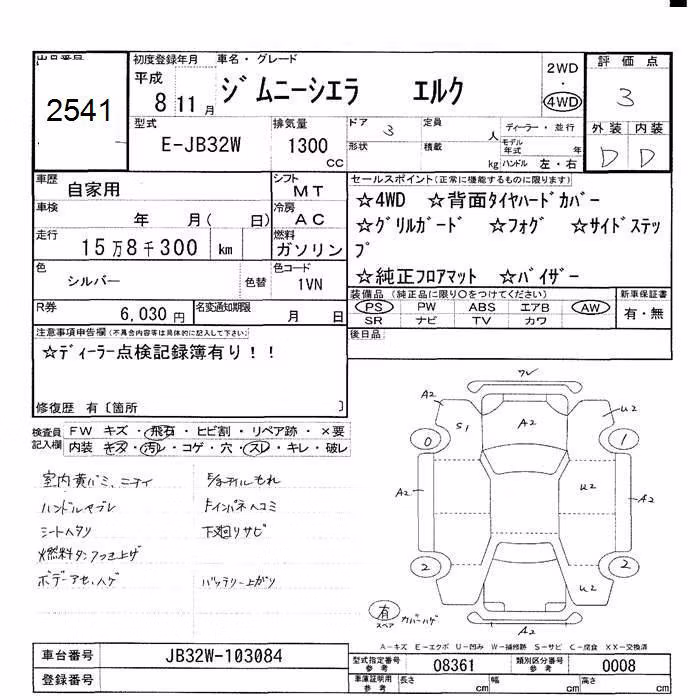 出品番号 初度登録年月 車名・グレード
2541 平成 8 11月 ジムニーシエラ エルク
2WD ・ 4WD
評価点
3
型式 排気量 ドア 3 定員 人 ディーラー・並行 外装 内装
E-JB32W 1300 CC 形状 積載 kg モデル年式 年 ハンドル 左・右 D D
車歴 自家用 シフト MT
セールスポイント(正常に機能するものに限ります)
車検 年 月( 日) 冷房 AC
☆4WD ☆背面タイヤハードカバー
☆グリルガード ☆フォグ ☆サイドステッ
プ
☆純正フロアマット ☆バイザー
走行 15万8千300 km 燃料 ガソリン
色 シルバー 色替 色コード 1VN
装備品(純正品に限り○をつけてください) 新車保証書
PS PW ABS エアB AW 有・無
SR ナビ TV カワ
R券 6,030円 名変通知期限 月 日
後日品
注意事項申告欄(不具合内容等は具体的に記入して下さい)
☆ディーラー点検記録簿有り!!
修復歴 有〔箇所 〕
検査員記入欄 FW キズ・飛石・ヒビ割・リペア跡・×要
内装 キズ・汚レ・コゲ・穴・スレ・キレ・破レ
室内黄バミ、ニオイ
ハンドルヤブレ
シートヘタリ
燃料タンクつき上ゲ
ボデーアセ、ハゲ
ショックオイルもれ
Fインパネヘコミ
下廻りサビ
バッテリー上がり
ワレ
A2 S1 A2 U2
0 1
A2 U2 A2
2 2
U2
有 スペア カバーハゲ A2
A-キズ E-エクボ U-凹み W-補修跡 S-サビ C-腐食 XX-交換済
車台番号 JB32W-103084
登録番号
型式指定番号 参考 08361 類別区分番号 参考 0008
車庫証明用 参考 長さ cm 幅 cm 高さ cm